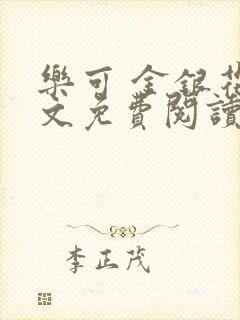 樂可 金銀花
文免費閱讀
李正茂